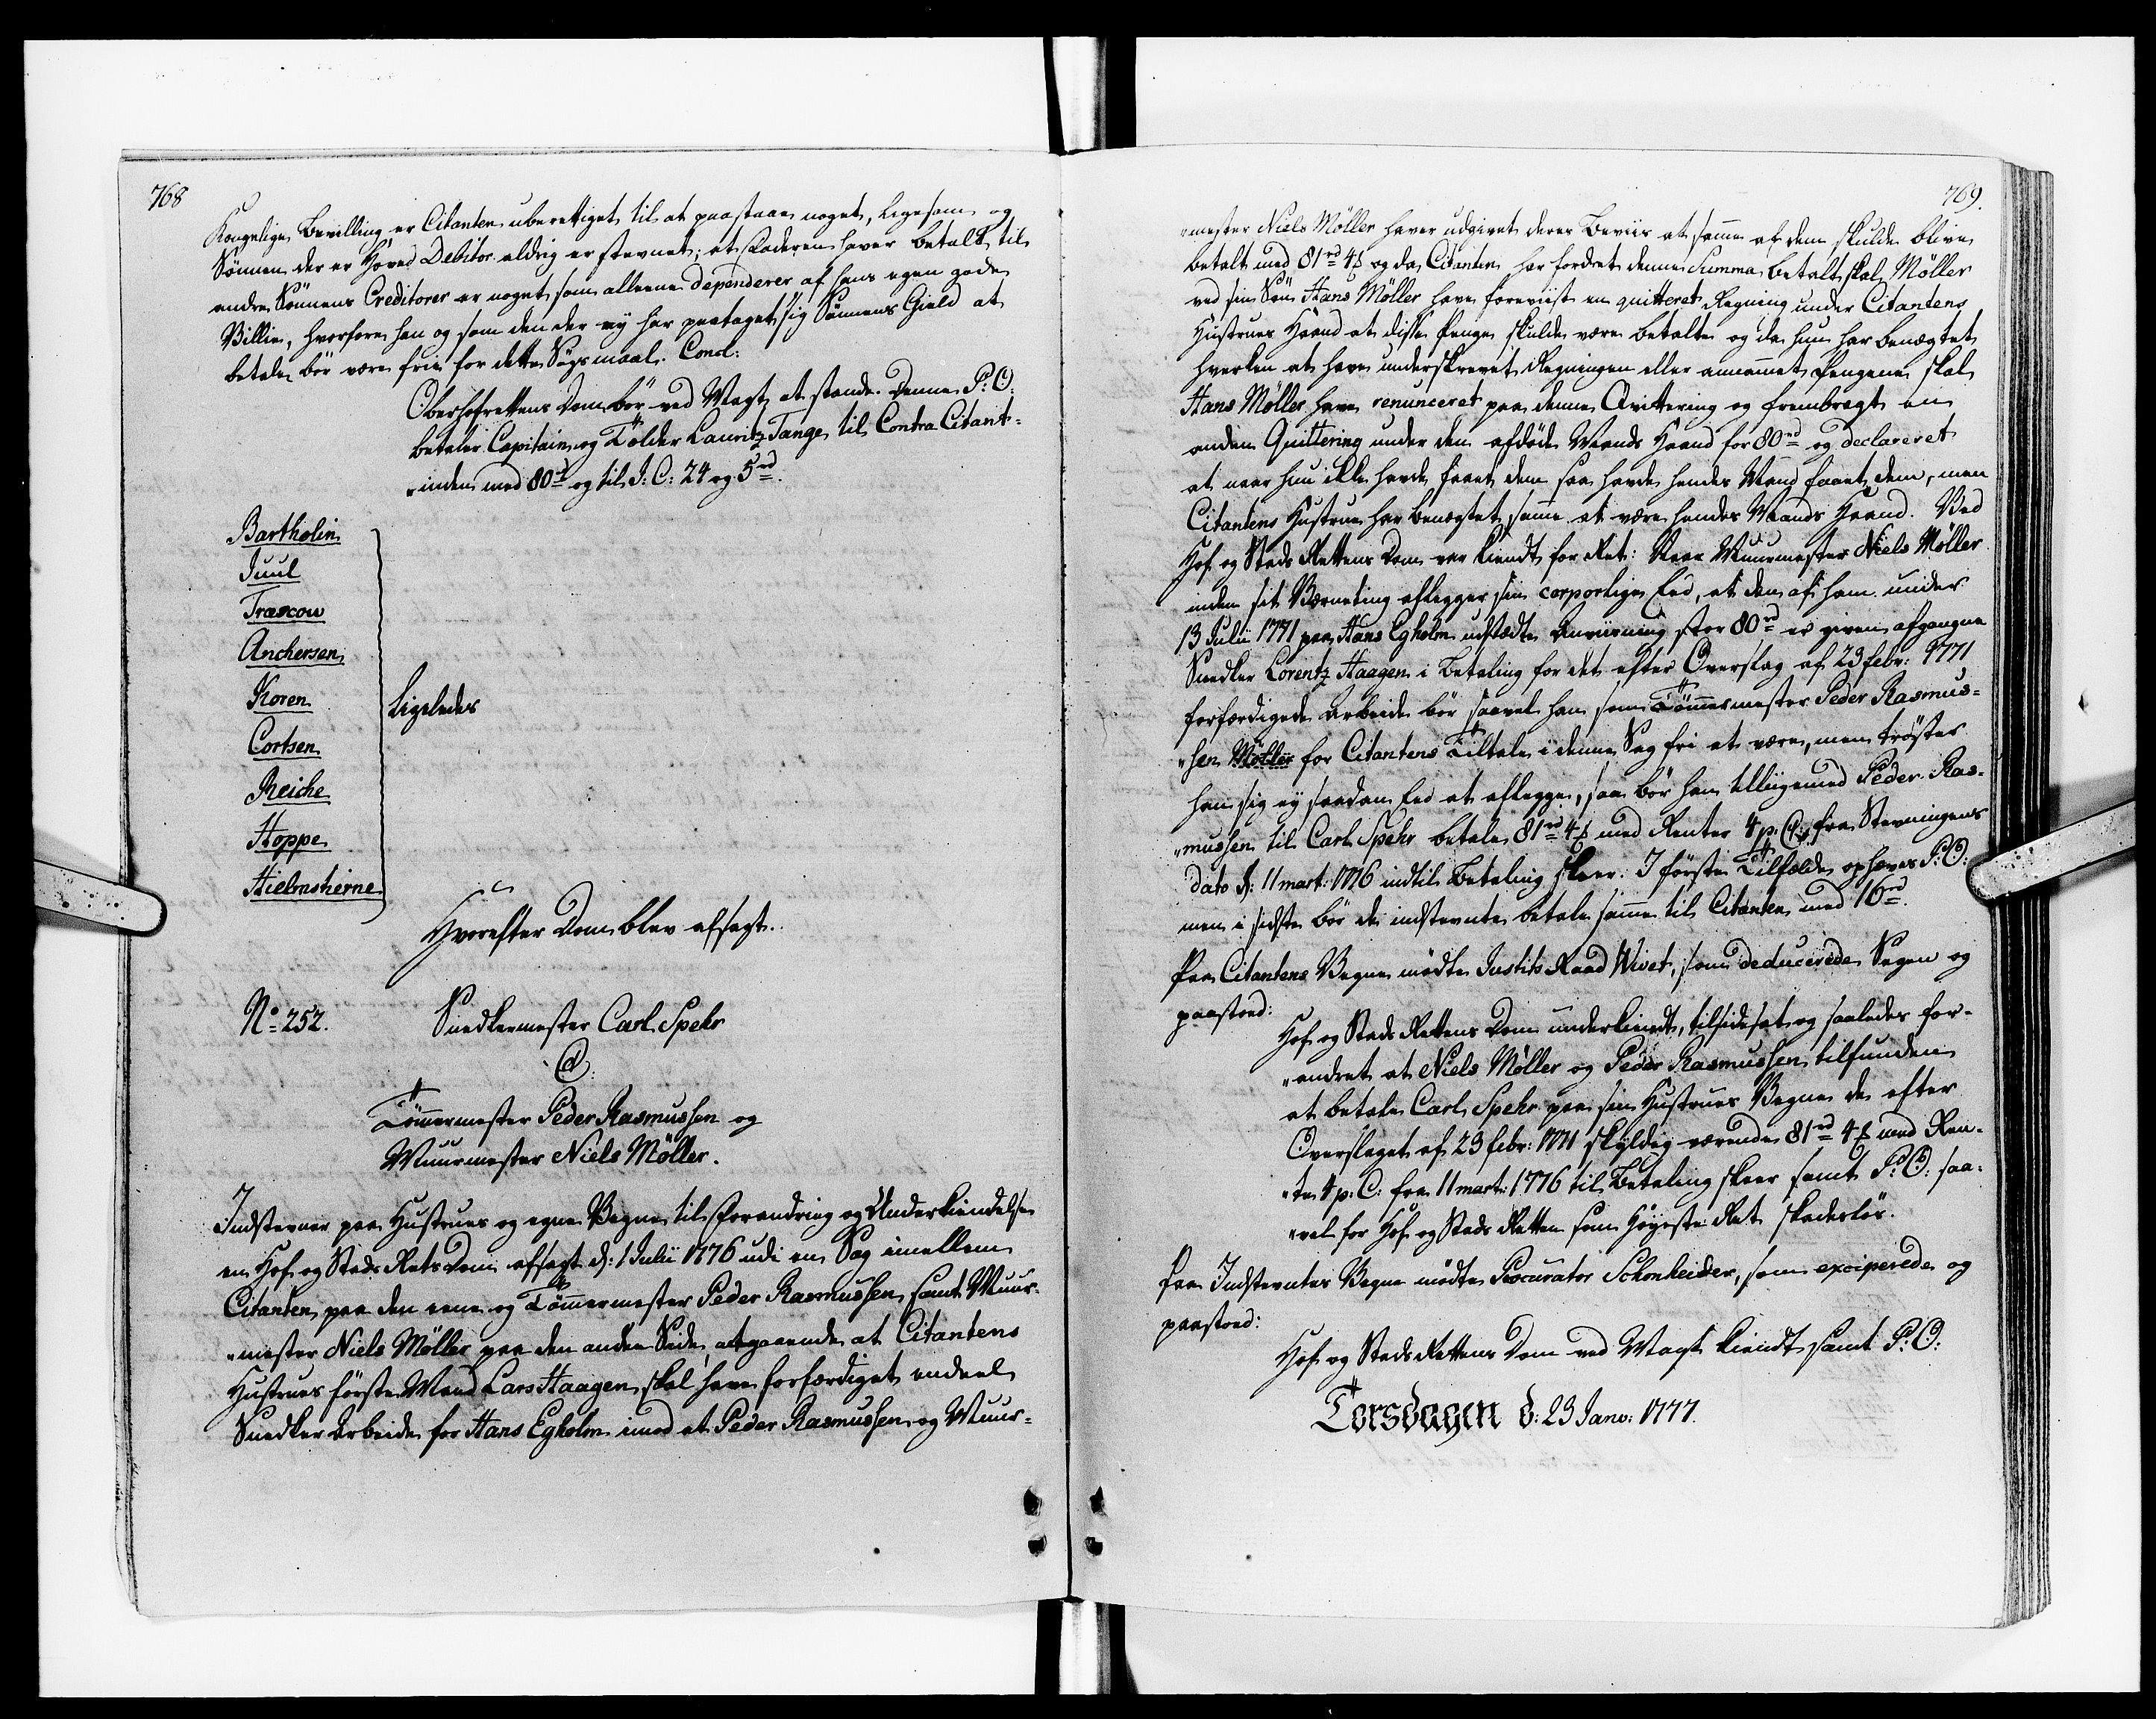 768
Kongelige Bevilling er Citanten uberettiget til at paastaae noget, ligesom og
Sönnen der er Hoved Debitor aldrig er stevnet; at Faderen haver betalt til
andre Sönnens Creditorer er noget som alleene dependerer af hans egen gode
Villie, hvorfore han og som den der ey har paataget sig Sönnens Gield at
betale bör være frie for dette Sögsmaal. Concl:
Oberhofrettens Dom bör ved Magt at stande. Denne P: O:
betaler Capitain og Tolder Lauritz Tange til Contra Citant-
„inden med 80 rd og til J: C: 24 og 5 rd.
Bartholin
Juul
Træscow
Anchersen
Koren
Cortsen
Reiche
Hoppe
Hielmstierne
Ligeledes
Hvorefter Dom blev afsagt.
No 252.
Snedkermester Carl Spehr
@:
Tömmermester Peder Rasmussen og
Muurmester Niels Möller.
Indstevner paa Hustrues og egne Vegne til Forandring og Underkiendelse
en Hof og Stads Rets Dom afsagt d: 1 Julii 1776 udi en Sag imellem
Citanten paa den eene og Tömmermester Peder Rasmussen samt Muur-
„mester Niels Möller paa den anden Side angaaende at Citantens
Hustrues förste Mand Lars Haagen skal have forfærdiget endeel
Snedker Arbeide for Hans Egholm imod at Peder Rasmussen og Muur-
769.
„mester Niels Möller haver udgivet deres Beviis at samme af dem skulde blive
betalt med 81 rd 4 ß og da Citanten har fordret denne Summa betalt skal Möller
ved sin Sön Hans Möller have foreviist en quitteret Regning under Citantens
Hustrues Haand at disse Penge skulde være betalte og da hun har benægtet
hverken at have underskrevet Regningen eller annammet Pengene skal
Hans Møller have renunceret paa denne Qvittering og frembragt en
anden Quittering under den afdöde Mands Haand for 80 rd og declareret
at naar hun ikke havde faaet dem saa havde hendes Mand faaet dem, men
Citantens Hustrue har benægtet samme at være hendes Mands Haand. Ved
Hof og Stads Rettens Dom var kiendt for Ret: Naar Muurmester Niels Möller
inden sit Værneting aflegger sin corporlige Eed, at den af ham under
13 Julii 1771 paa Hans Egholm udstædte Anviisning stor 80 rd er given afgangne
Snedker Lorentz Haagen i Betaling for det efter Overslag af 23 febr: 1771
forfærdigede Arbeide bör saavel han som Tömmermester Peder Rasmus-
„sen Möller for Citantens Tiltale i denne Sag fri at være, men tröster
han sig ey saadan Eed at aflegge, saa bör han tilligemed Peder Ras-
„mussen til Carl Spehr betale 81 rd 4 ß med Renter 4 p: C: fra Stevningens
dato d: 11 mart: 1776 indtil Betaling skeer. I förste Tilfælde ophæves P: O:
men i sidste bör de indstevnte betale samme til Citanten med 10 rd.
Paa Citantens Vegne mödte Justits Raad Wivet, som deducerede Sagen og
paastoed:
Hof og Stads Rettens Dom underkiendt, tilsidesat og saaledes for-
„andret at Niels Möller og Peder Rasmussen tilfunden
at betale Carl Spehr paa sin Hustrues Vegne de efter
Overslaget af 23 febr: 1771 skyldig værende 81 rd 4 ß med Ren-
„te 4 p: C: fra 11 mart: 1776 til Betaling skeer samt P: O: saa-
„vel for Hof og Stads Retten som Höyeste Ret skadeslös.
Paa Indstevntes Vegne mödte Procurator Schonheider, som exciperede og
paastoed:
Hof og Stads Rettens Dom ved Magt kiendt samt P: O:
Torsdagen d: 23 Janv: 1777.